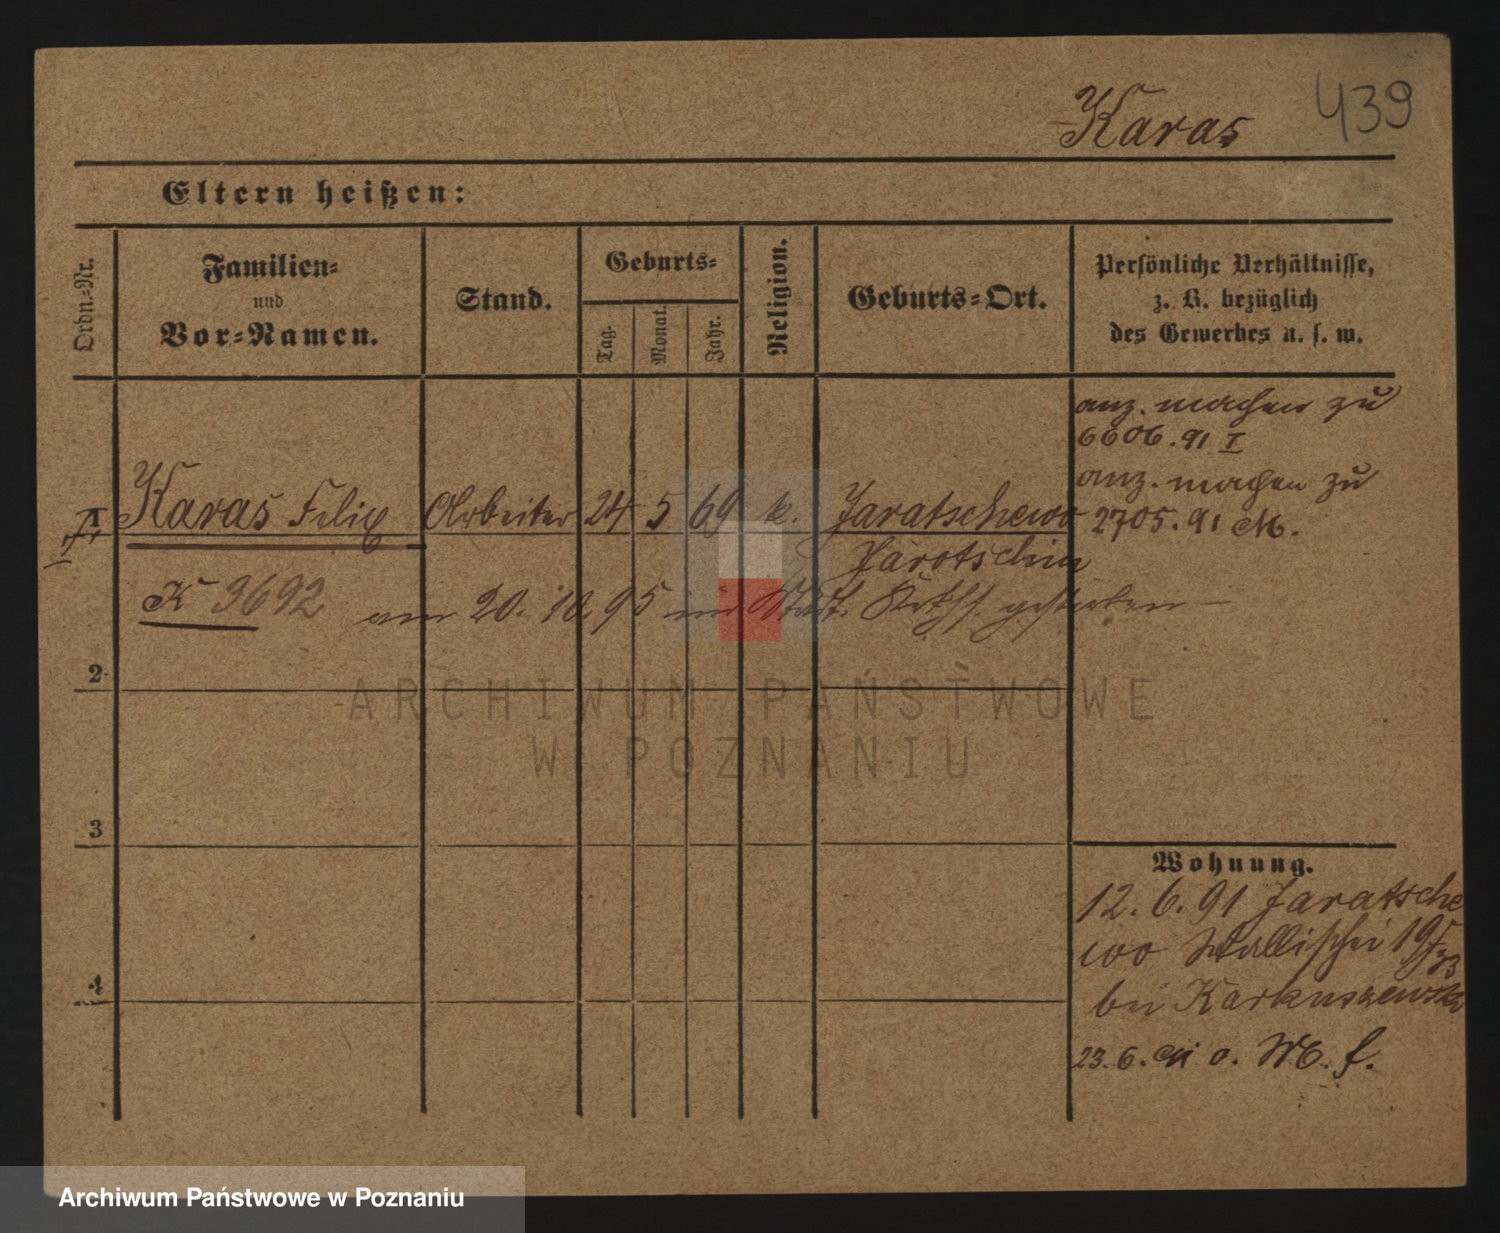 Karas 439
Eltern heißen:
Ordn.-Nr.
Familien-
und
Vor-Namen.
Stand.
Geburts-
Tag.
Monat.
Jahr.
Religion.
Geburts-Ort.
Persönliche Verhältnisse,
z. B. bezüglich
des Gewerbes u. s. w.
anz. machen zu
6606.91 I
anz. machen zu
2705.91 M.
1 Karas Felix Arbeiter 24 5 69 k. Jaratschewo
Jarotschin
K 3692 am 20. 10. 95 im Stadt. gestorben
2
3
4
Wohnung.
12. 6. 91 Jaratsche
wo Wallischei
bei
23. 6.
ARCHIWUM PAŃSTWOWE
W POZNANIU
Archiwum Państwowe w Poznaniu